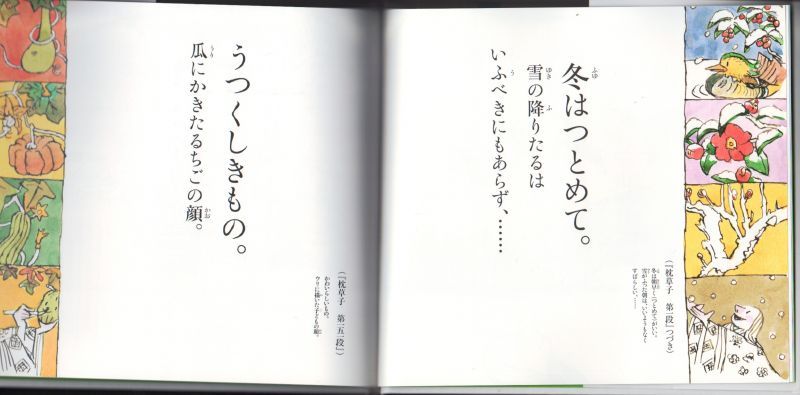 冬はつとめて。
雪の降りたるは
いふべきにもあらず、……
(『枕草子 第一段』つづき)
冬は朝早く(つとめて)がいい。
雪がふった朝は、いいようもなく
すばらしい。……
うつくしきもの。
瓜にかきたるちごの顔。
(『枕草子 第一五一段』)
かわいらしいもの。
ウリに描いた子どもの顔。